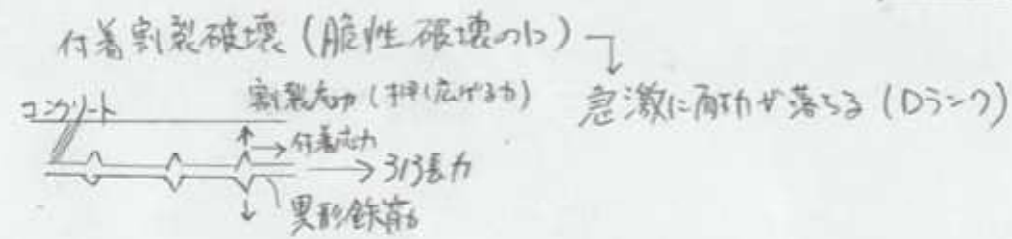 付着割裂破壊(脆性破壊の1つ)
急激に耐力が落ちる(Dランク)
コンクリート
割裂応力(押し広げる力)
付着応力
引張力
異形鉄筋